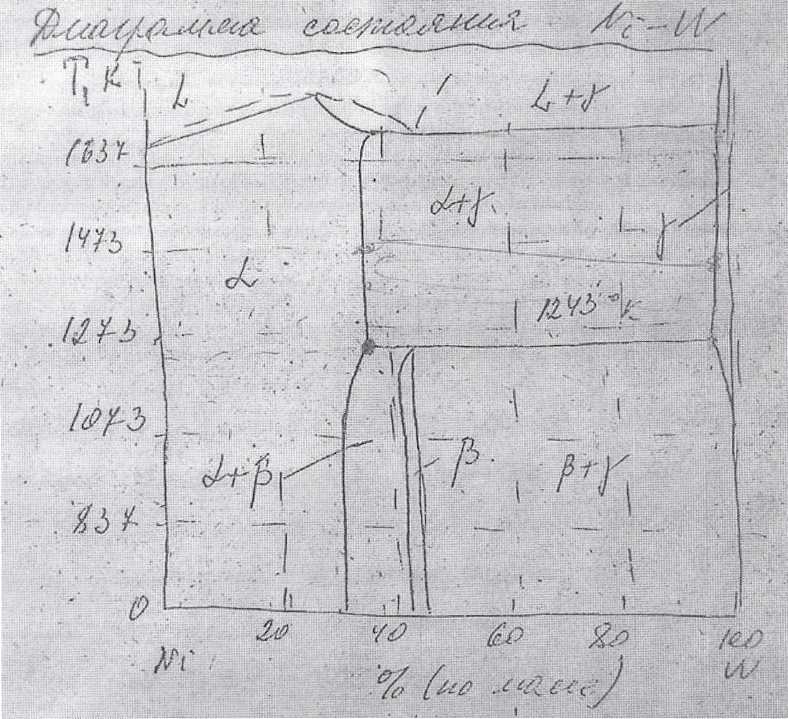 Диаграмма состояния Ni-W
T, К
L
L+γ
1637
α+γ
1473
γ
α
1243°К
1273
1073
α+β
β
β+γ
837
0
20
40
60
80
100
Ni
% (по массе)
W